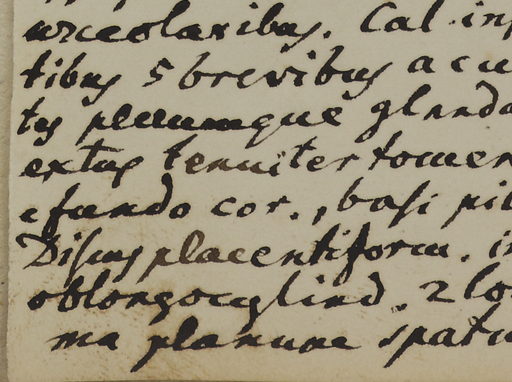 urceolaribus. Cal. inf
tibus 5 brevibus acu
tus plerumque glando
extus tenuiter tomen
e fundo cor., basi pil
Discus placentiform. in
oblongocylind. 2 lo
ma planum spatu